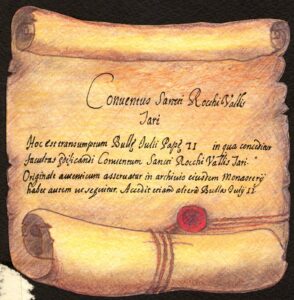 Conventus Sancti Rocchi Vallis
Tari
Hoc est transumptum Bullę Iulii Papę II in qua conceditur
facultas ędificandi Conventum Sancti Rocchi Vallis Tari.
Originale autenticum asservatur in archivio eiusdem Monasterij
habet autem ut sequitur. Accedit etiam altera Bullas Iulij II